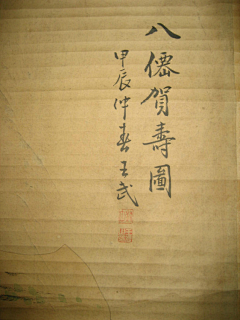 八僊賀壽圖
甲辰仲春王武